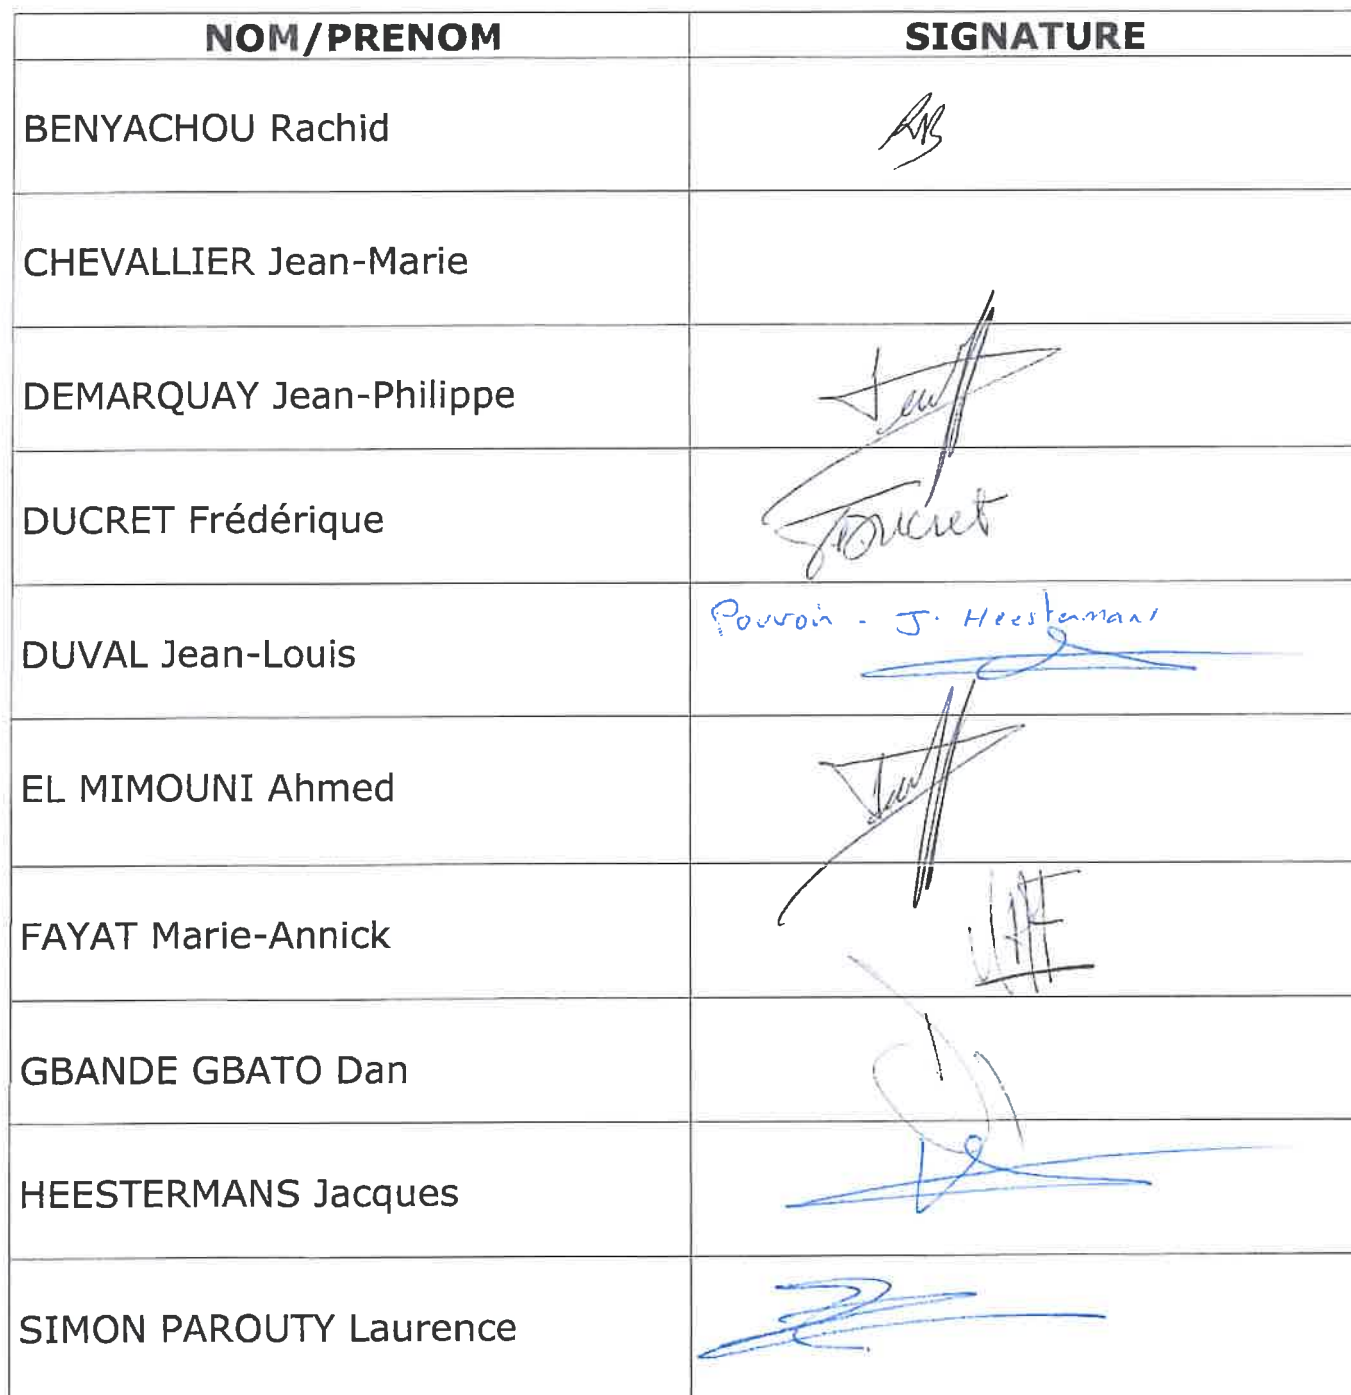 NOM/PRENOM SIGNATURE
BENYACHOU Rachid
CHEVALLIER Jean-Marie
DEMARQUAY Jean-Philippe
DUCRET Frédérique Ducret
DUVAL Jean-Louis Pouvoir - J. Heestermans
EL MIMOUNI Ahmed
FAYAT Marie-Annick MAF
GBANDE GBATO Dan
HEESTERMANS Jacques
SIMON PAROUTY Laurence